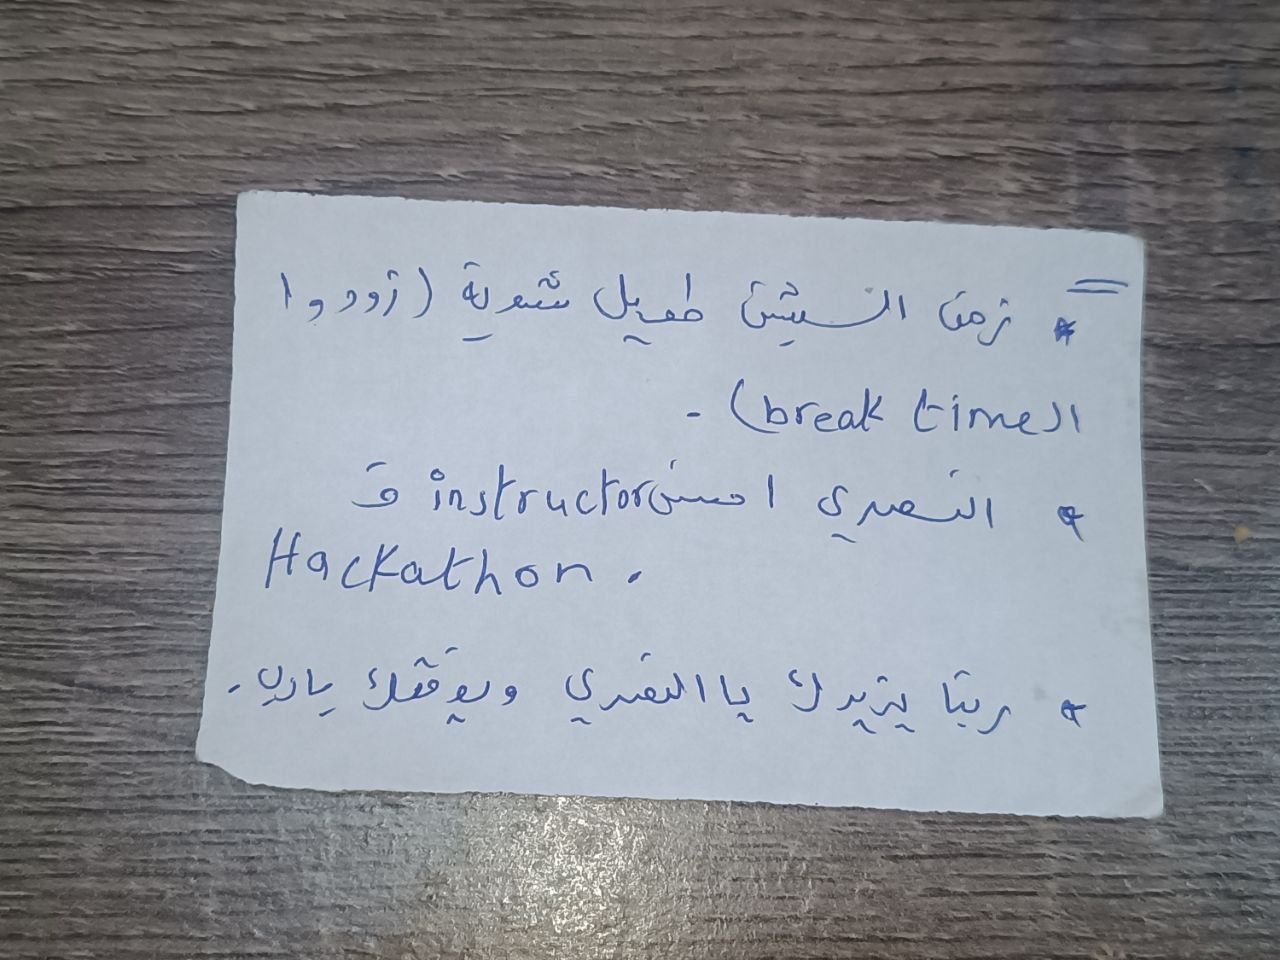 * زمن السيشن طويل شوية (زودوا
ال break time) .
* النصري احسن instructor ف
Hackathon .
* ربنا يزيدك يا النصري ويوفقك يارب .